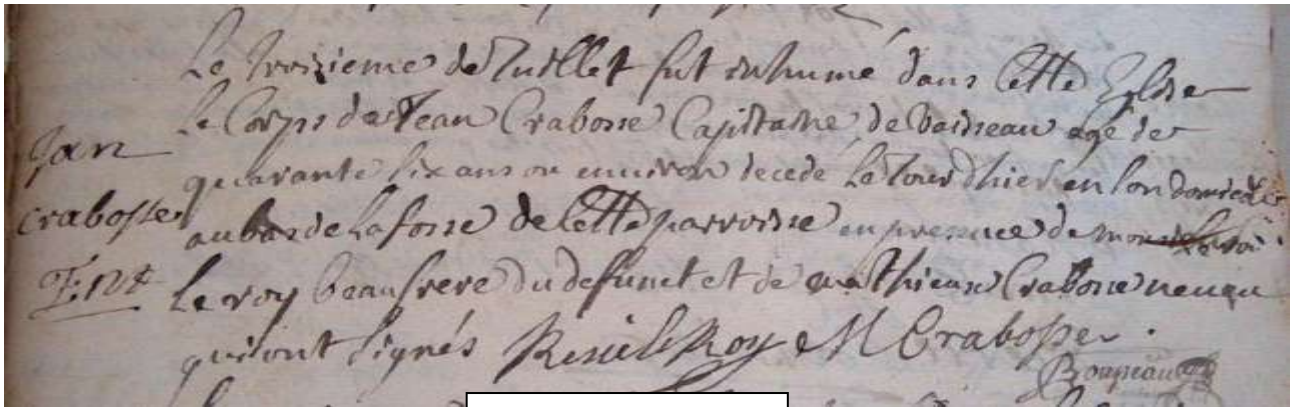 Le troizieme de Juillet fut inhumé dans Cette Eglise
Jan
Le Corps de Jean Crabosse Capitaine de Vaisseau agé de
quarante six ans ou environ decedé le Jour d'hier en son domicile
Crabosse
au bas de la fosse de Cette parroisse en presence de
Ent
Le roy beaufrere du defunct et de mathieux Crabosse neveu
qui ont signés René le Roy M Crabosse.